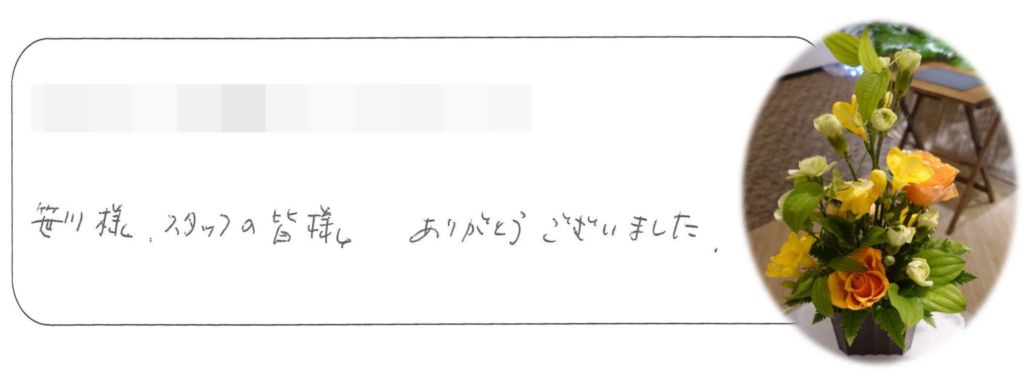 笹川様、スタッフの皆様 ありがとうございました.